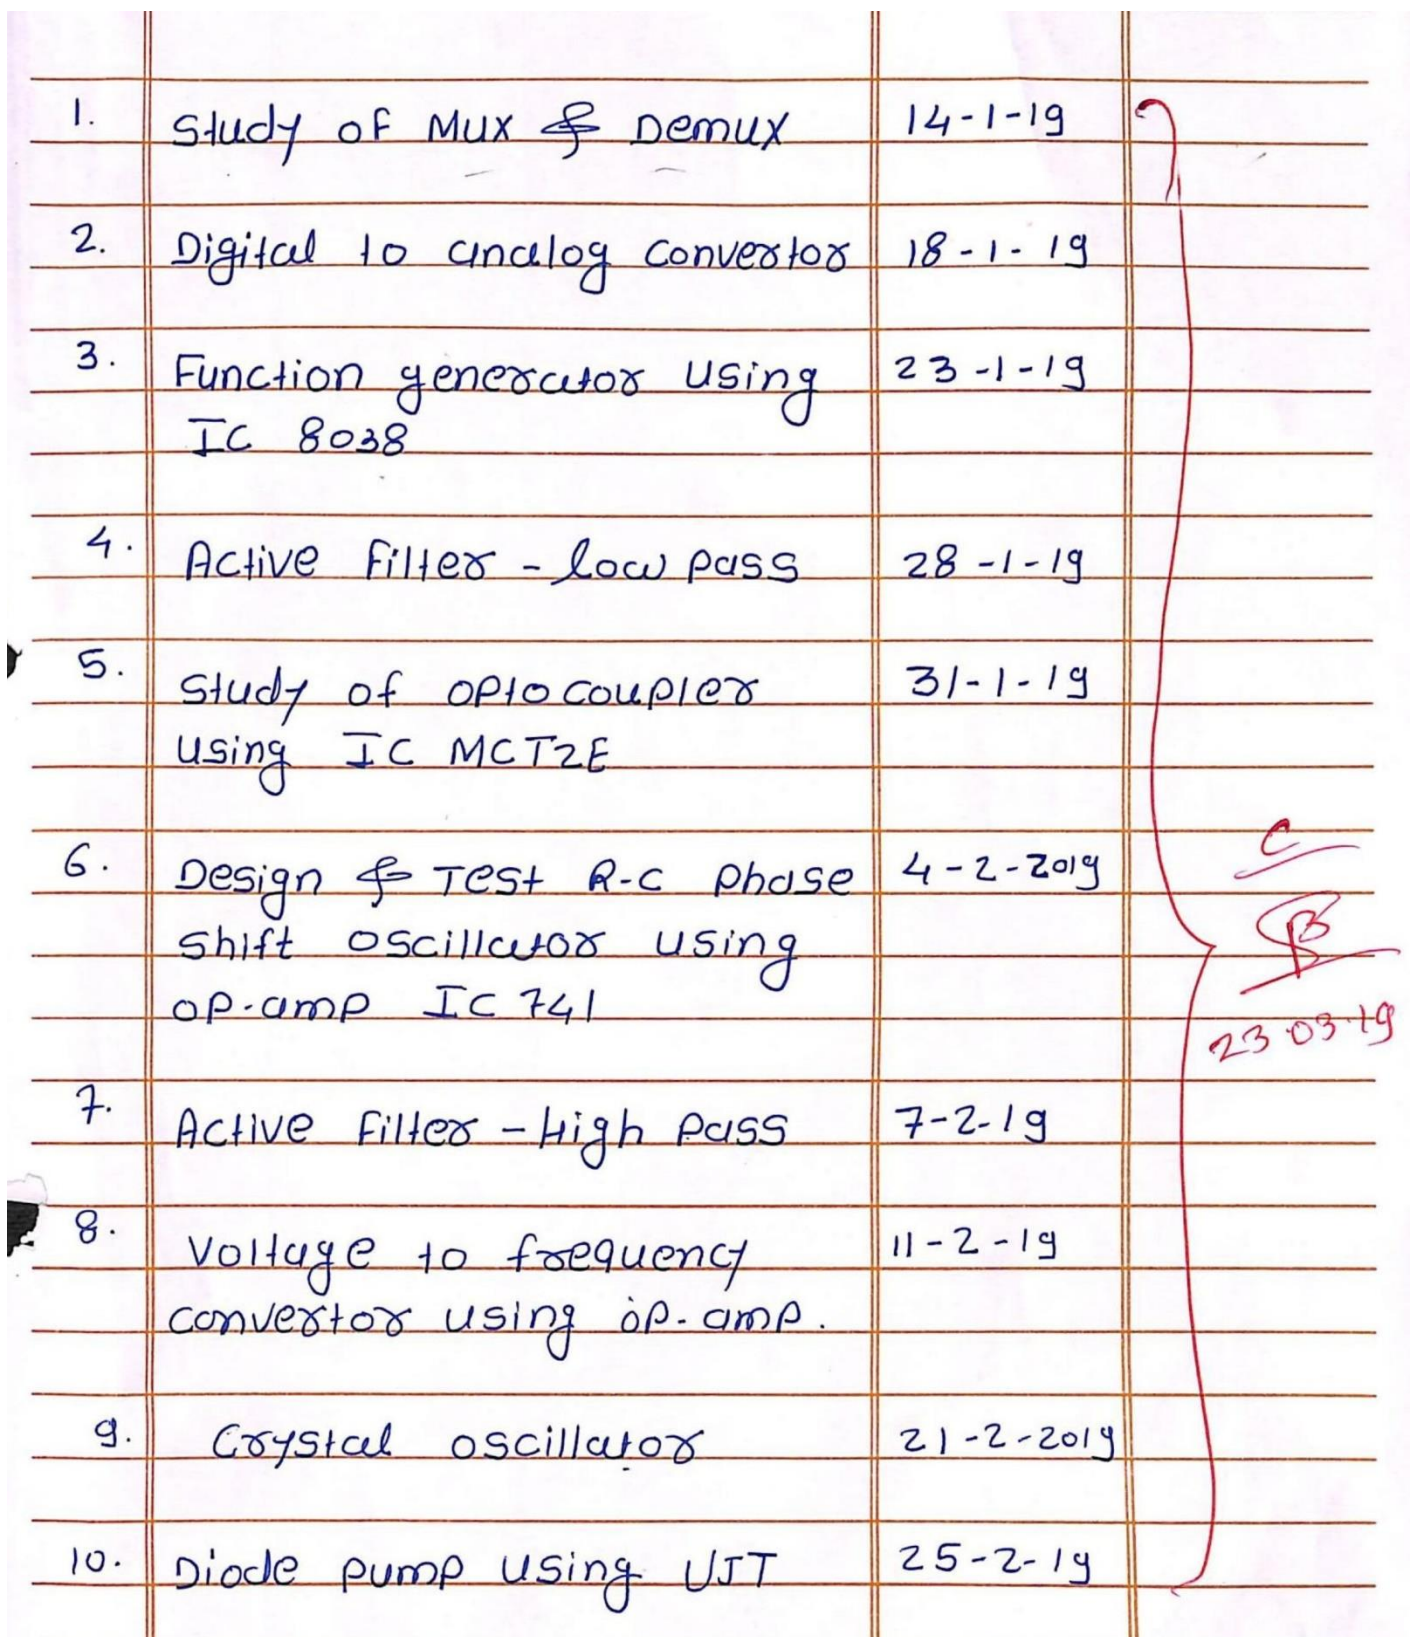 1. Study of Mux & Demux 14-1-19
2. Digital to analog Convertor 18-1-19
3. Function generator Using 23-1-19
IC 8038
4. Active Filter - low pass 28-1-19
5. Study of optocoupler 31-1-19
using IC MCT2E
6. Design & Test R-C phase 4-2-2019
shift oscillator using
op-amp IC 741
23.03.19
7. Active Filter - High pass 7-2-19
8. Voltage to frequency 11-2-19
convertor using op-amp.
9. Crystal oscillator 21-2-2019
10. Diode pump using UJT 25-2-19